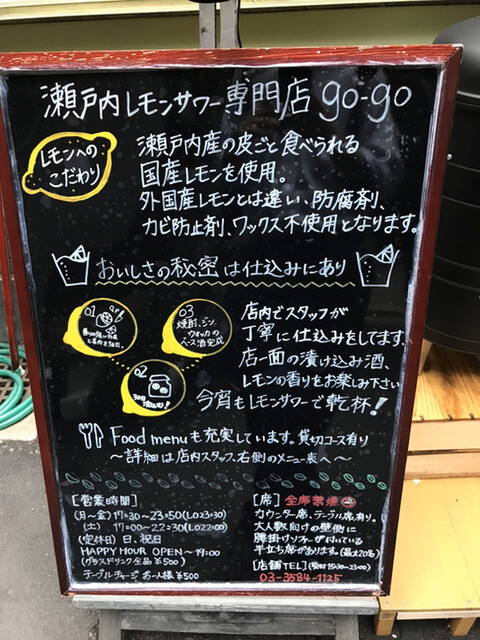 瀬戸内レモンサワー専門店 go-go
レモンへの
こだわり
瀬戸内産の皮ごと食べられる
国産レモンを使用。
外国産レモンとは違い、防腐剤、
カビ防止剤、ワックス不使用となります。
おいしさの秘密は仕込みにあり
01
03
焼酎、ジン、
ウォッカの
ベース酒完成
02
30日
店内でスタッフが
丁寧に仕込みをしてます。
店一面の漬け込み酒、
レモンの香りをお楽しみ下さい
今宵もレモンサワーで乾杯!
Food menuも充実しています。貸切コース有り
～詳細は店内スタッフ、右側のメニュー表へ～
[営業時間]
(月～金) 17:30～23:50(LO23:30)
(土) 17:00～22:30(LO22:00)
(定休日) 日、祝日
HAPPY HOUR OPEN～19:00
(グラスドリンク全品 ¥500)
テーブルチャージ お一人様 ¥500
[席] 全席禁煙
カウンター席、テーブル席有り。
大人数向けの壁側に
腰掛けソファが付いている
半立ち席があります。(最大20名)
[店舗TEL] (15:30～23:00)
03-3584-1125